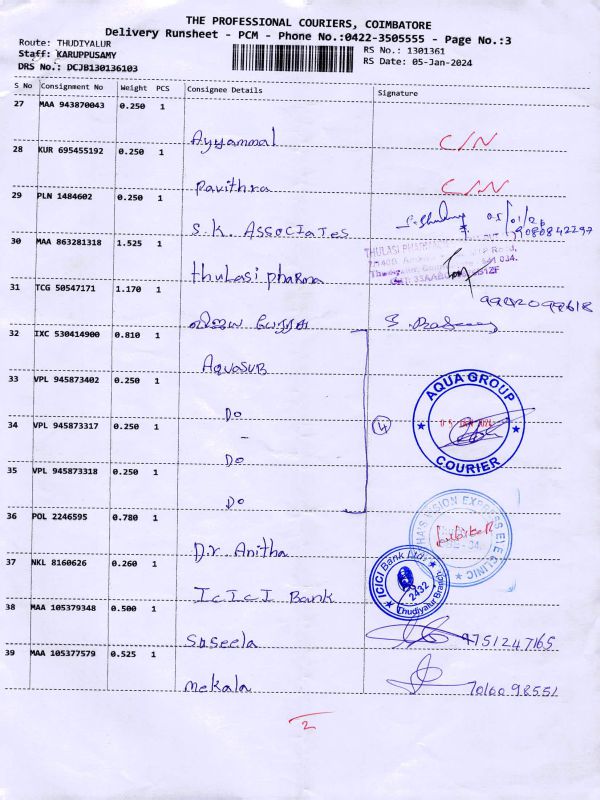 THE PROFESSIONAL COURIERS, COIMBATORE
Delivery Runsheet - PCM - Phone No.:0422-3505555 - Page No.:3
Route: THUDIYALUR
RS No.: 1301361
Staff: KARUPPUSAMY
RS Date: 05-Jan-2024
DRS No.: DCJB130136103
S No Consignment No Weight PCS Consignee Details Signature
27 MAA 943870043 0.250 1
Ayyammal C/N
28 KUR 695455192 0.250 1
Pavithra C/N
29 PLN 1484602 0.250 1
S.K. Associates 05/01/24
9080842297
30 MAA 863281318 1.525 1
THULASI PHARMA
Thulasi pharma
31 TCG 50547171 1.170 1
32 IXC 530414900 0.810 1
AquaSUB
33 VPL 945873402 0.250 1
AQUA GROUP
COURIER
Do
34 VPL 945873317 0.250 1
4
Do
35 VPL 945873318 0.250 1
Do
36 POL 2246595 0.780 1
Dr. Anitha
37 NKL 8160626 0.260 1
ICICI Bank Ltd.
2432
Thudiyalur Branch
ICICI Bank
38 MAA 105379348 0.500 1
Suseela 9751247165
39 MAA 105377579 0.525 1
Mekala
2